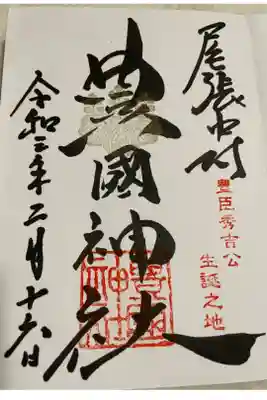 尾張中村
豊臣秀吉公
生誕之地
豊國神社
令和二年二月十六日